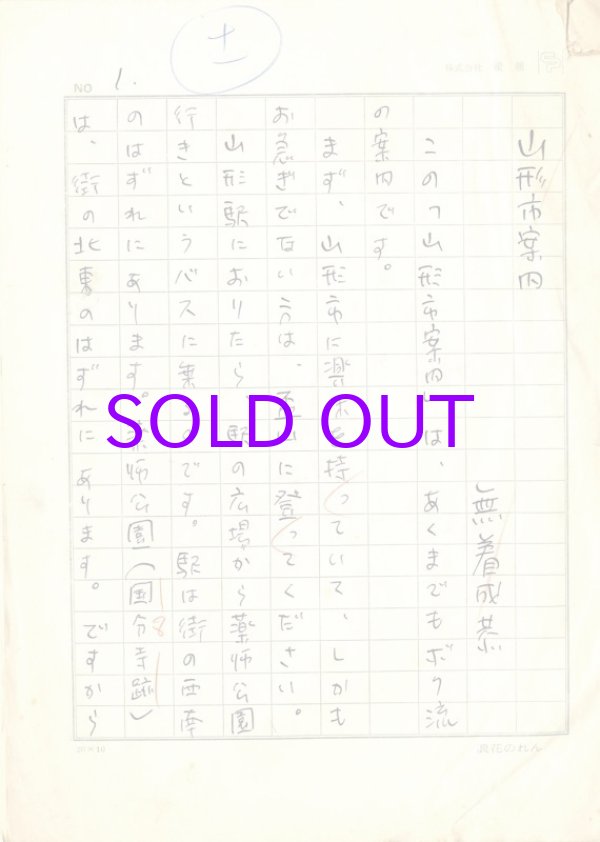 十一
NO 1.
山形市案内
無着成恭
この「山形市案内」は、あくまでもボク流
の案内です。
まず、山形市に興味を持っていて、しかも
お急ぎでない方は、盃山に登ってください。
山形駅におりたら、駅の広場から薬師公園
行きというバスに乗るのです。駅は街の西南
のはずれにあります。薬師公園(国分寺跡)
は、街の北東のはずれにあります。ですから
SOLD OUT
20×10
浪花のれん